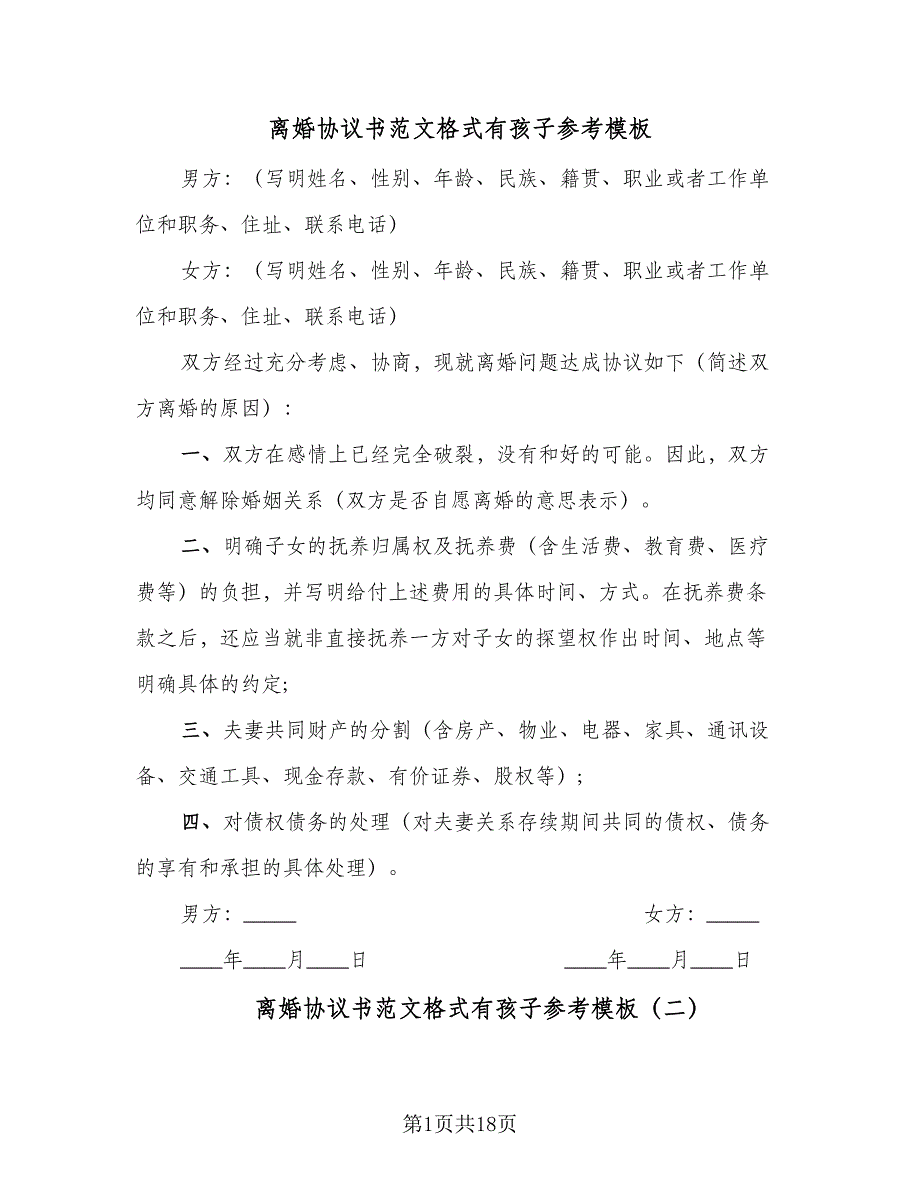 离婚协议书范文格式有孩子参考模板
男方：（写明姓名、性别、年龄、民族、籍贯、职业或者工作单
位和职务、住址、联系电话）
女方：（写明姓名、性别、年龄、民族、籍贯、职业或者工作单
位和职务、住址、联系电话）
双方经过充分考虑、协商，现就离婚问题达成协议如下（简述双
方离婚的原因）：
一、双方在感情上已经完全破裂，没有和好的可能。因此，双方
均同意解除婚姻关系（双方是否自愿离婚的意思表示）。
二、明确子女的抚养归属权及抚养费（含生活费、教育费、医疗
费等）的负担，并写明给付上述费用的具体时间、方式。在抚养费条
款之后，还应当就非直接抚养一方对子女的探望权作出时间、地点等
明确具体的约定;
三、夫妻共同财产的分割（含房产、物业、电器、家具、通讯设
备、交通工具、现金存款、有价证券、股权等）;
四、对债权债务的处理（对夫妻关系存续期间共同的债权、债务
的享有和承担的具体处理）。
男方：_____ 女方：_____
____年____月____日 ____年____月____日
离婚协议书范文格式有孩子参考模板（二）
第1页共18页